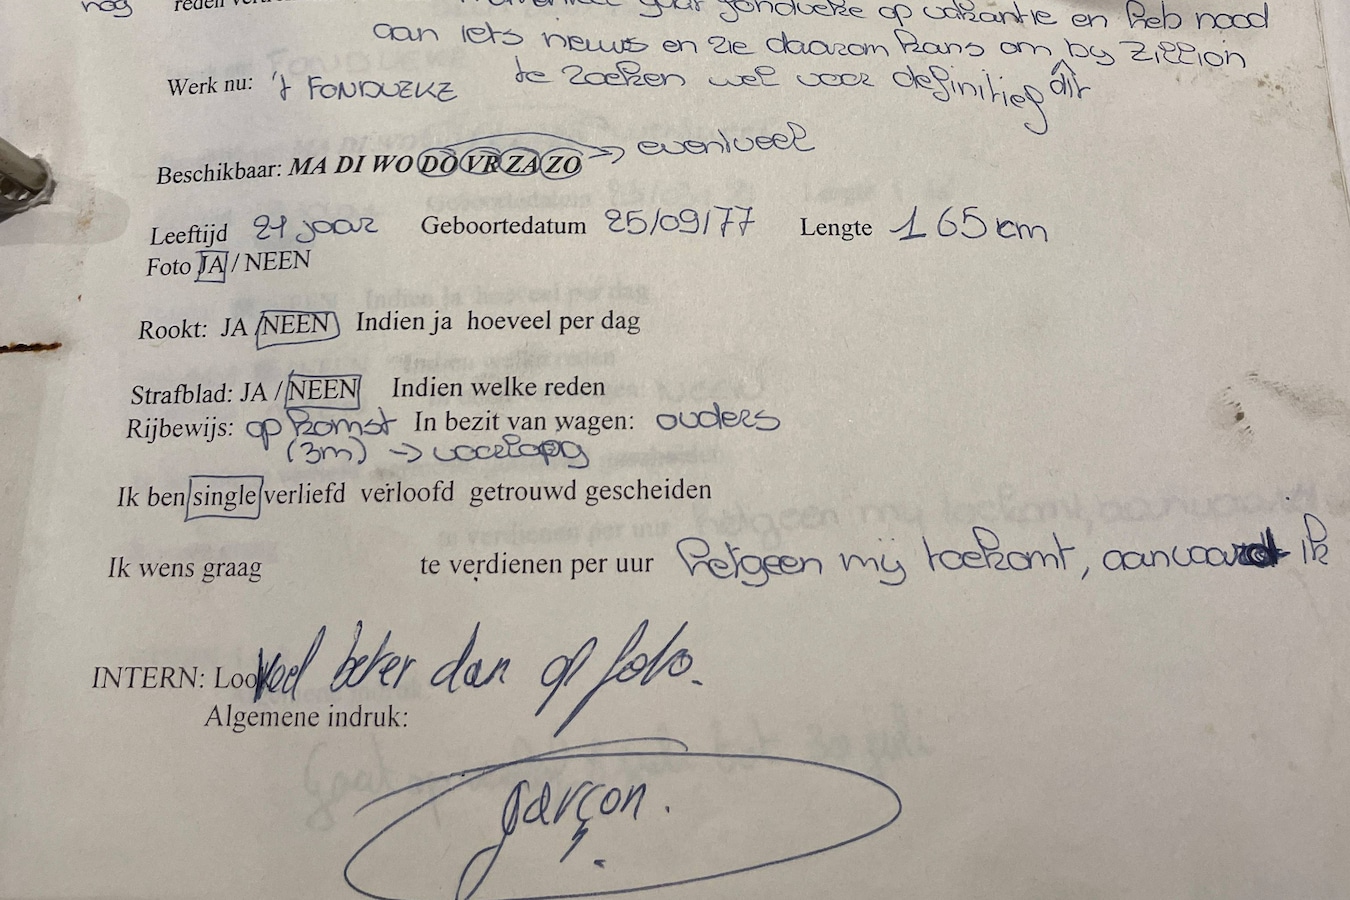 nog reden momenteel gaat fondueke op vakantie en heb nood
aan iets nieuws en zie daarom kans om by Zillion
Werk nu: 't FONDUEKE te zoeken wel voor definitief dit
Beschikbaar: MA DI WO DO VR ZA ZO → eventueel
Leeftijd 21 jaar Geboortedatum 25/09/77 Lengte 165 cm
Foto JA / NEEN
Rookt: JA / NEEN Indien ja hoeveel per dag
Strafblad: JA / NEEN Indien welke reden
Rijbewijs: op komst In bezit van wagen: ouders
(3m) → voorlopig
Ik ben single verliefd verloofd getrouwd gescheiden
Ik wens graag te verdienen per uur hetgeen mij toekomt, aanvaard ik
INTERN: Look Veel beter dan op foto.
Algemene indruk:
garçon.